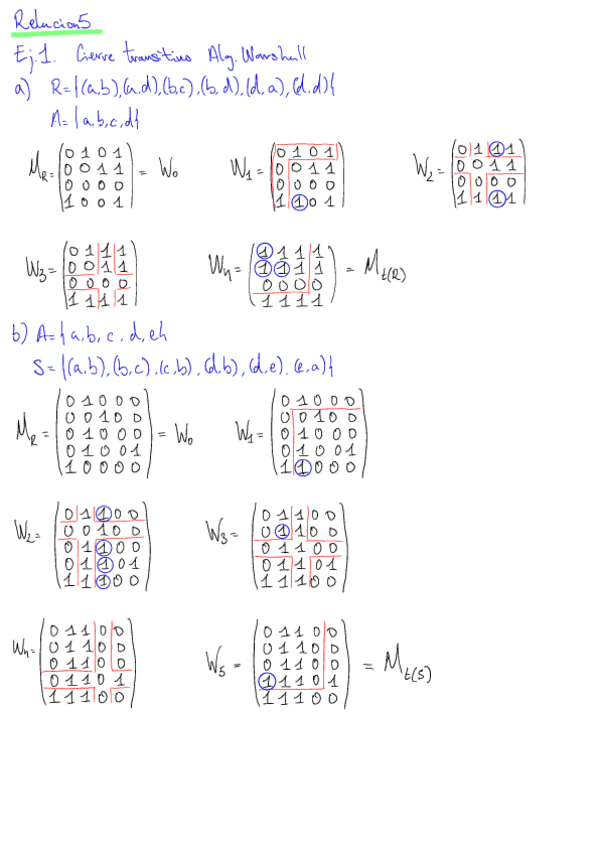 Relacion5
Ej.1. Cierre transitivo Alg. Warshall
a) R={(a,b),(a,d),(b,c),(b,d),(d,a),(d,d)}
A={a,b,c,d}
M_R = (0 1 0 1 / 0 0 1 1 / 0 0 0 0 / 1 0 0 1) = W₀ W₁ = (0 1 0 1 / 0 0 1 1 / 0 0 0 0 / 1 1 0 1) W₂ = (0 1 1 1 / 0 0 1 1 / 0 0 0 0 / 1 1 1 1)
W₃ = (0 1 1 1 / 0 0 1 1 / 0 0 0 0 / 1 1 1 1) W₄ = (1 1 1 1 / 1 1 1 1 / 0 0 0 0 / 1 1 1 1) = M_t(R)
b) A={a,b,c,d,e}
S={(a,b),(b,c),(c,b),(d,b),(d,e),(e,a)}
M_R = (0 1 0 0 0 / 0 0 1 0 0 / 0 1 0 0 0 / 0 1 0 0 1 / 1 0 0 0 0) = W₀ W₁ = (0 1 0 0 0 / 0 0 1 0 0 / 0 1 0 0 0 / 0 1 0 0 1 / 1 1 0 0 0)
W₂ = (0 1 1 0 0 / 0 0 1 0 0 / 0 1 1 0 0 / 0 1 1 0 1 / 1 1 1 0 0) W₃ = (0 1 1 0 0 / 0 1 1 0 0 / 0 1 1 0 0 / 0 1 1 0 1 / 1 1 1 0 0)
W₄ = (0 1 1 0 0 / 0 1 1 0 0 / 0 1 1 0 0 / 0 1 1 0 1 / 1 1 1 0 0) W₅ = (0 1 1 0 0 / 0 1 1 0 0 / 0 1 1 0 0 / 1 1 1 0 1 / 1 1 1 0 0) = M_t(S)